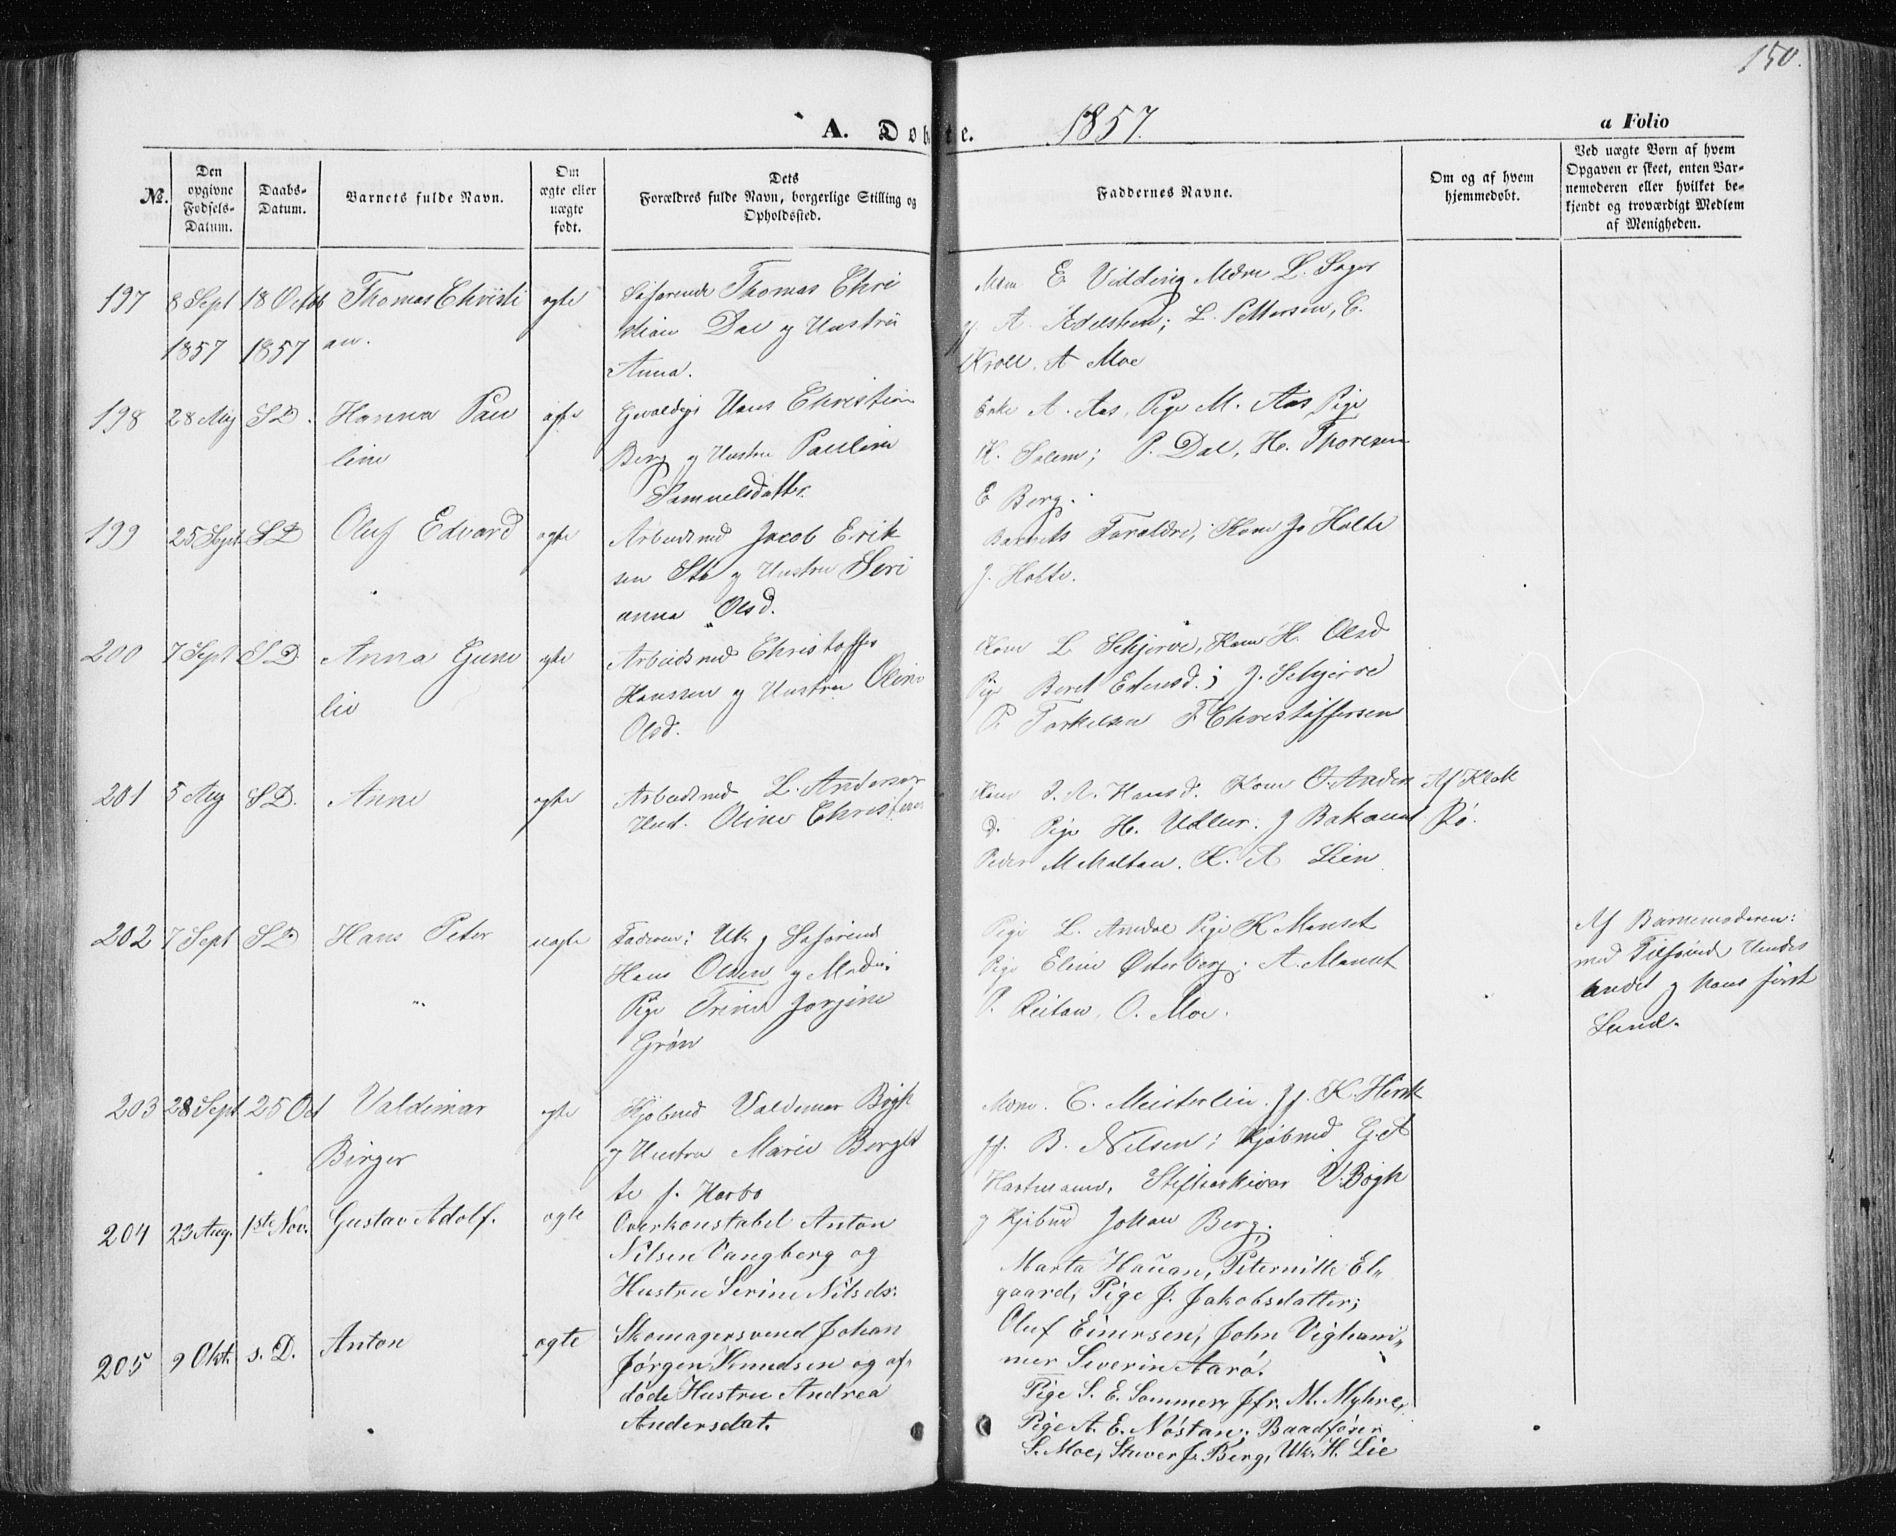 150.
A. Døbte. 1857. a Folio
No.
Den opgivne Fødsels-Datum.
Daabs-Datum.
Barnets fulde Navn.
Om ægte eller uægte født.
Dets Forældres fulde Navn, borgerlige Stilling og Opholdssted.
Faddernes Navne.
Om og af hvem hjemmedøbt.
Ved uægte Børn af hvem Opgaven er skeet, enten Barnemoderen eller hvilket bekjendt og troværdigt Medlem af Menigheden.
197 8 Sept 18 Octob Thomas Christi ægte Søfarende Thomas Chri
1857 1857 an. stian Dal og Hustru
Anna.
Mdm E Vidding Mdm L. Sager
jf A. Adelsteen; L. Pettersen, C.
Kroll. A Moe
198 28 Aug S D. Hanna Pau ægte Gevaldiger Hans Christian
line Berg og Hustru Pauline
Samuelsdatter
Enke A. Aas, Pige M. Aas Pige
K. Solem; P. Dal, H. Thoresen
E Berg.
199 25 Sept S D Oluf Edvard ægte Arbeidsmd Jacob Erik
sen Stø og Hustru Seri
anna Olsd.
Barnets Forældre; Kone J. Holte
J. Holte.
200 7 Sept S D. Anna Gune ægte Arbeidsmd Christoffer
lie Hanssen og Hustru Oline
Olsd.
Kone L Schjerve, Kone H. Olsd
Pige Beret Estensd.; J. Schjerve
P. Torkelsen F. Christoffersen
201 5 Aug S D. Anne ægte Arbeidsmd L. Andersen
Hust. Oline Christens
Kone J. A. Hansd. Kone O. Anders Af Klok
d. Pige H. Udler. J Bakaunt Rø.
Peder M Moltau. K. A Lien
202 7 Sept S D Hans Peter uægte Faderen: Uk og Søfarende
Hans Olsen og Mode:
Pige Trine Jorgine
Grøn
Pige L. Amdal Pige K Manset
Pige Eline Østerberg; A. Manset
P. Reitan, O. Moe.
Af Barnemoderen:
med Tilføiende Hendes
andet og hans først
Lund.
203 28 Sept 25 Oct Valdemar ægte Kjøbmd Valdemar Bøgh
Birger og Hustru Marie Bergit
te f. Harbo
Mdm. C. Meisterlin. Jf. K. Hirsch
jf. B. Nilsen; Kjøbmd G. A
Hartmann, Stiftsarkivar V. Bøgh
og Kjøbmd Johan Berg.
204 23 Aug. 1ste Nov. Gustav Adolf. ægte Overkonstabel Anton
Nilsen Vangberg og
Hustru Serine Nilsds:
Marta Hauan, Peternille El-
gaard, Pige J. Jakobsdatter;
Oluf Einersen, John Vigham-
mer Severin Aarø.
205 9 Okt. s. D. Anton ægte Skomagersvend Johan
Jørgen Knudsen og af-
døde Hustru Andrea
Andersdat.
Pige S. E. Sommer, Jfr. M. Myhre,
Pige A. E. Nøstan; Baadfører
S. Moe, Stuver J. Berg, Uk. H. Lie